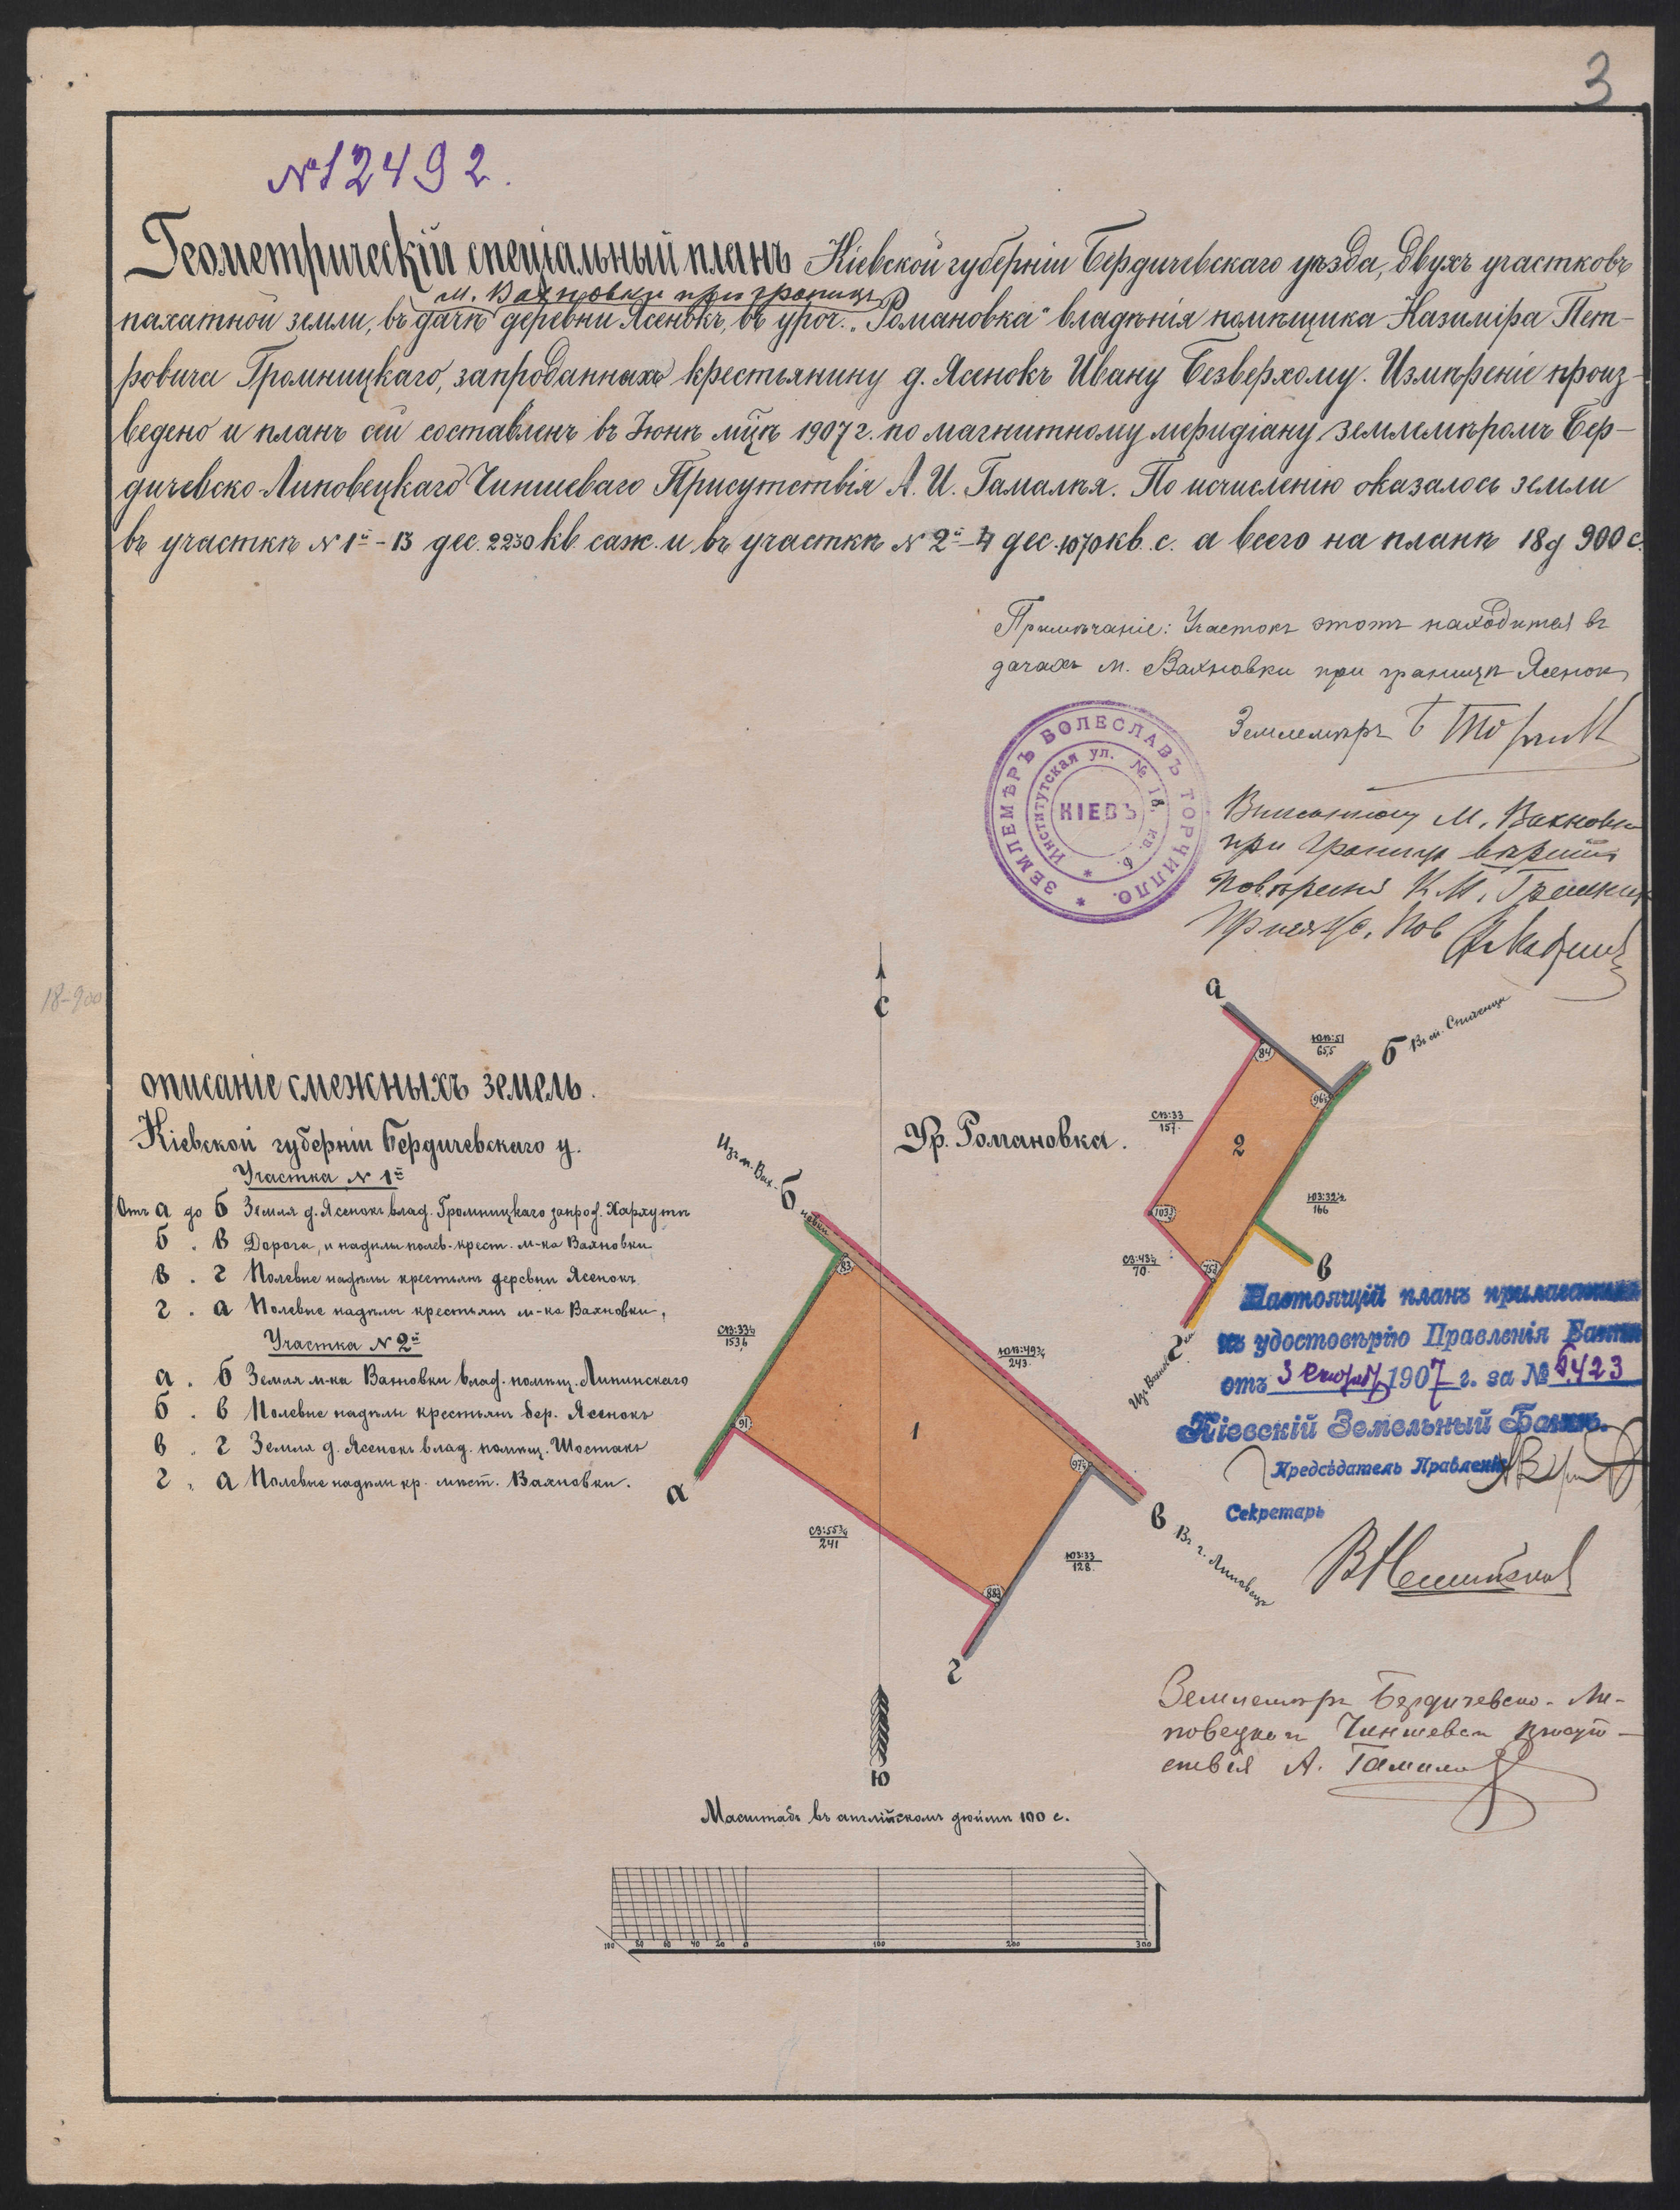 3
№12492.
Геометрическій спеціальный планъ Кіевской губерніи Бердичевскаго уѣзда, двухъ участковъ
м. Вахновки при границѣ
пахатной земли, въ дачѣ деревни Ясенокъ, въ уроч. „Романовка“ владѣнія помѣщика Казиміра Пет-
ровича Громницкаго, запроданныхъ крестьянину д. Ясенокъ Ивану Безверхому. Измѣреніе произ-
ведено и планъ сей составленъ въ Іюнѣ мцѣ 1907 г. по магнитному меридіану землемѣромъ Бер-
дичевско-Липовецкаго Чиншеваго Присутствія А. И. Гамалѣя. По исчисленію оказалось земли
въ участкѣ № 1й - 13 дес. 2230 кв. саж. и въ участкѣ № 2й - 4 дес. 1070 кв. с. а всего на планѣ 18 д 900 с.
Примѣчаніе: Участокъ этотъ находится въ
дачахъ м. Вахновки при границѣ Ясенокъ
Землемѣръ Б
ЗЕМЛЕМѢРЪ БОЛЕСЛАВЪ ТОРЧИЛЛО. *
Институтская ул. № 18. кв. 6. *
КІЕВЪ
м. Вахновки
при границѣ вѣрить
18-900
С
описаніе смежныхъ земель.
Кіевской губерніи Бердичевскаго у.
Участка № 1й
Отъ а до б Земля д. Ясенокъ влад. Громницкаго запрод. Хархутѣ
б . в Дорога, и надѣлы полев. крест. м-ка Вахновки
в . г Полевые надѣлы крестьянъ деревни Ясенокъ
г . а Полевые надѣлы крестьянъ м-ка Вахновки,
Участка № 2й
а . б Земля м-ка Вахновки влад. помѣщ. Липинскаго
б . в Полевые надѣлы крестьянъ дер. Ясенокъ
в . г Земля д. Ясенокъ влад. помѣщ. Шостакъ
г . а Полевые надѣлы кр. мѣст. Вахновки.
Ур. Романовка.
а
б
Въ м. Спиченцы
ЮВ:51
65,5
84
96½
СВ:33
157.
2
ЮЗ:32½
166
103¾
СЗ:43¼
70.
75¾
в
г
Изъ
Изъ м. Вах-
новки
б
83
СВ:33¼
153,6
ЮВ:49¾
243.
91
1
97¼
а
СЗ:55¾
241
ЮЗ:33
128.
88¾
в
Въ г. Липовецъ
г
Ю
Настоящій планъ прилагается
къ удостовѣрію Правленія Банка
отъ 3 1907 г. за № 5423
Кіевскій Земельный Банкъ.
Предсѣдатель Правленія
Секретарь
Землемѣръ Бердичевско-Ли-
повецкаго Чиншеваго присут-
ствія А. Гамалѣя
Масштабъ въ англійскомъ дюймѣ 100 с.
100 80 60 40 20 0 100 200 300